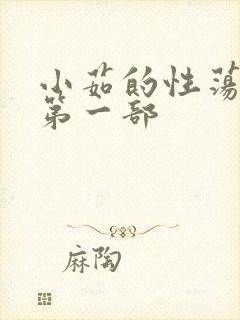 小茹的性荡
第一部
麻陶